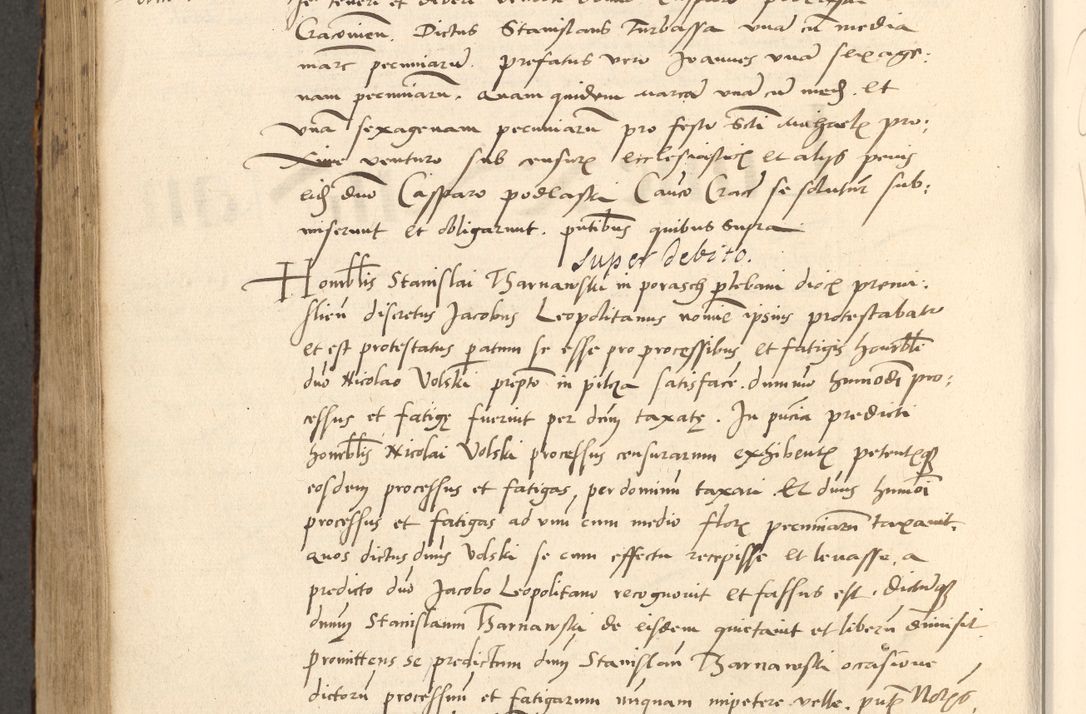 se teneri et debere
Cracovien. Dictus Stanislaus Turbassa una cu media
marc pecuniarū. Prefatus vero Joannes unā sexage:
nam pecuniarū. Quam quidem marcā unā cū med. et
unā sexagenam pecuniarū pro festo Scti Michaelis pro:
xime venturo sub censuris ecclesiasticis et alijs penis
dno Casparo podlaski Cano Crac se soluturos sub:
miserunt et obligarunt. pntibus quibus supra
super debito.
Honorblis Stanislai Tharnawski in porasch plebani dioc premi:
slien discretus Jacobus Leopolitanus nomine ipsius protestabatr
et est protestatus paratum se esse pro processibus et fatigis honorbli
dno Nicolao Volski preposito in pilcza satisfacere. dummodo huiusmodi pro:
cessus et fatigę fuerint per dnm taxatę. In pncia predicti
honorblis Nicolai Volski processus censurarum exhibentis petentisque
eosdem processus et fatigas per dominum taxari. Et dnus huiusmodi
processus et fatigas ad unū cum medio flor pecuniarū taxavit.
quos dictus dnus Volski se cum effectu recepisse et levasse a
predicto dno Jacobo Leopolitano recognovit et fassus est. Dictumque
dnum Stanislaum Tharnawski de eisdem quietavit et liberū dimisit
promittens se predictum dnm Stanislaū Tharnawski occasione
dictorū processuū et fatigarum nunquam impetere velle. pntibus